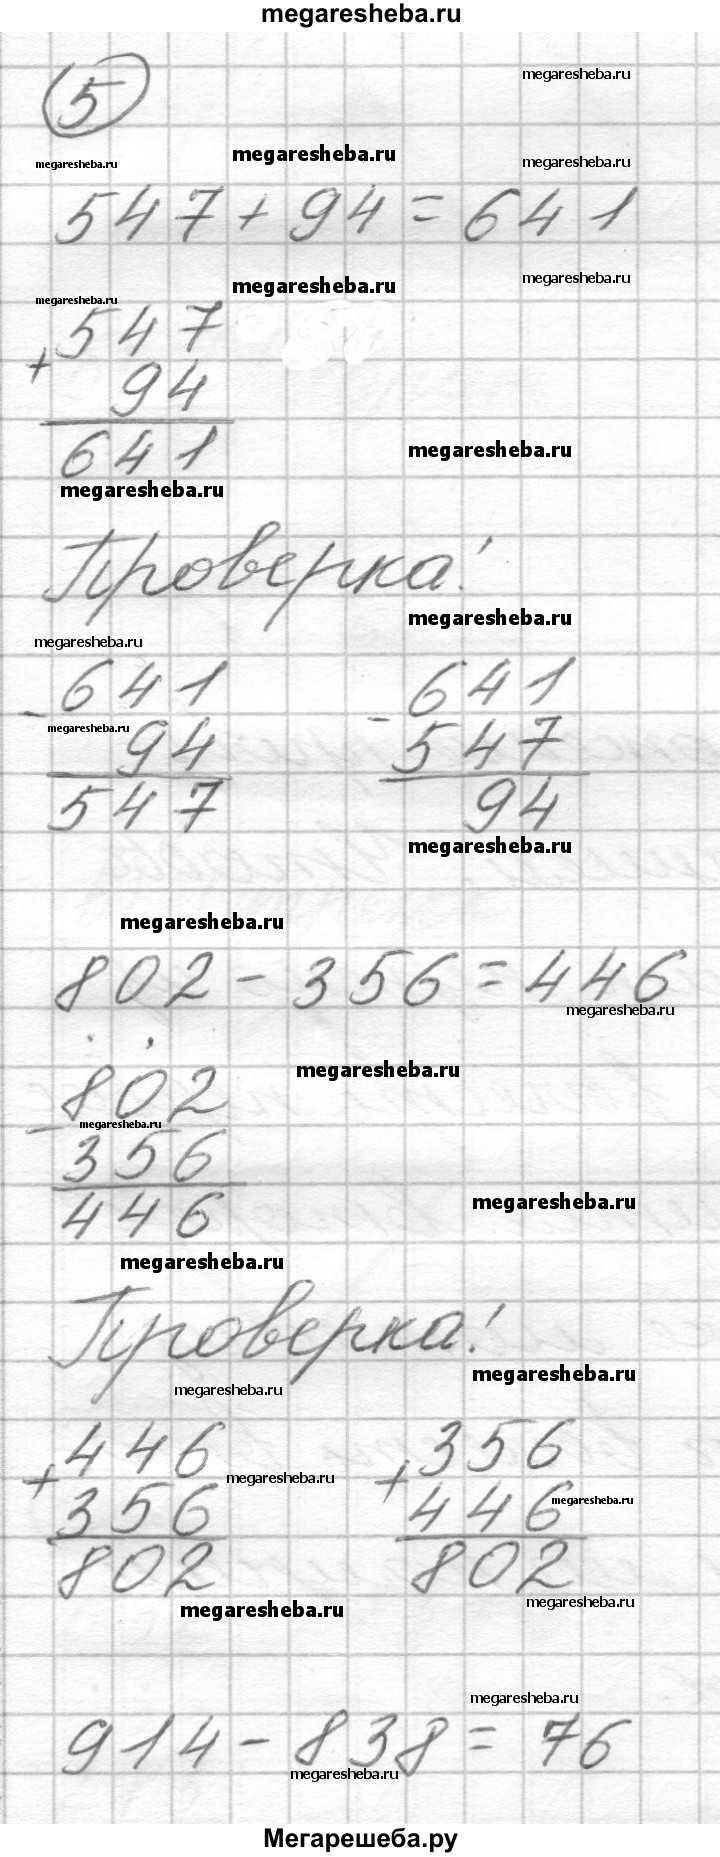 megaresheba.ru
5
megaresheba.ru
megaresheba.ru
megaresheba.ru
megaresheba.ru
547 + 94 = 641
megaresheba.ru
megaresheba.ru
megaresheba.ru
547
+ 94
641
megaresheba.ru
megaresheba.ru
Проверка:
megaresheba.ru
megaresheba.ru
- 641
94
547
megaresheba.ru
- 641
547
94
megaresheba.ru
megaresheba.ru
802 - 356 = 446
megaresheba.ru
megaresheba.ru
- 802
megaresheba.ru
356
446
megaresheba.ru
megaresheba.ru
Проверка:
megaresheba.ru
megaresheba.ru
+ 446
356
802
megaresheba.ru
+ 356
446
802
megaresheba.ru
megaresheba.ru
megaresheba.ru
megaresheba.ru
914 - 838 = 76
megaresheba.ru
Мегарешеба.ру